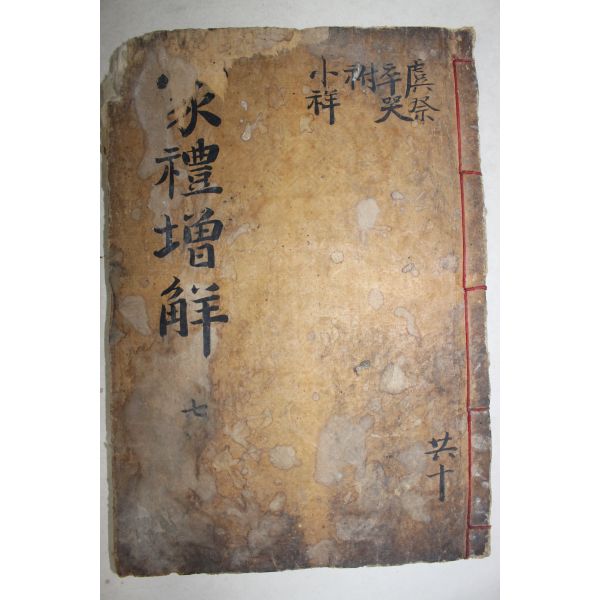 虞祭
卒哭
祔
小祥
家禮增觧
七
共十